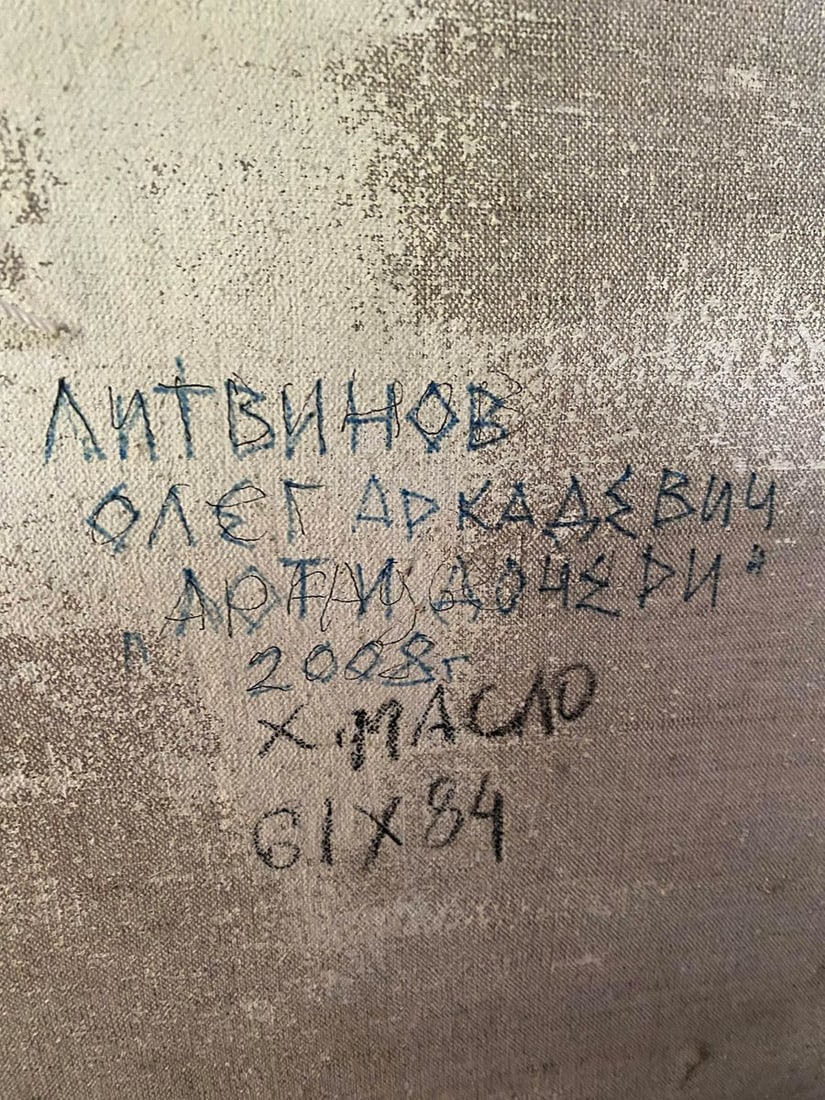 ЛИТВИНОВ
ОЛЕГ АРКАДЕВИЧ
ДОЧЕРИ"
2008г
Х.МАСЛО
61Х84